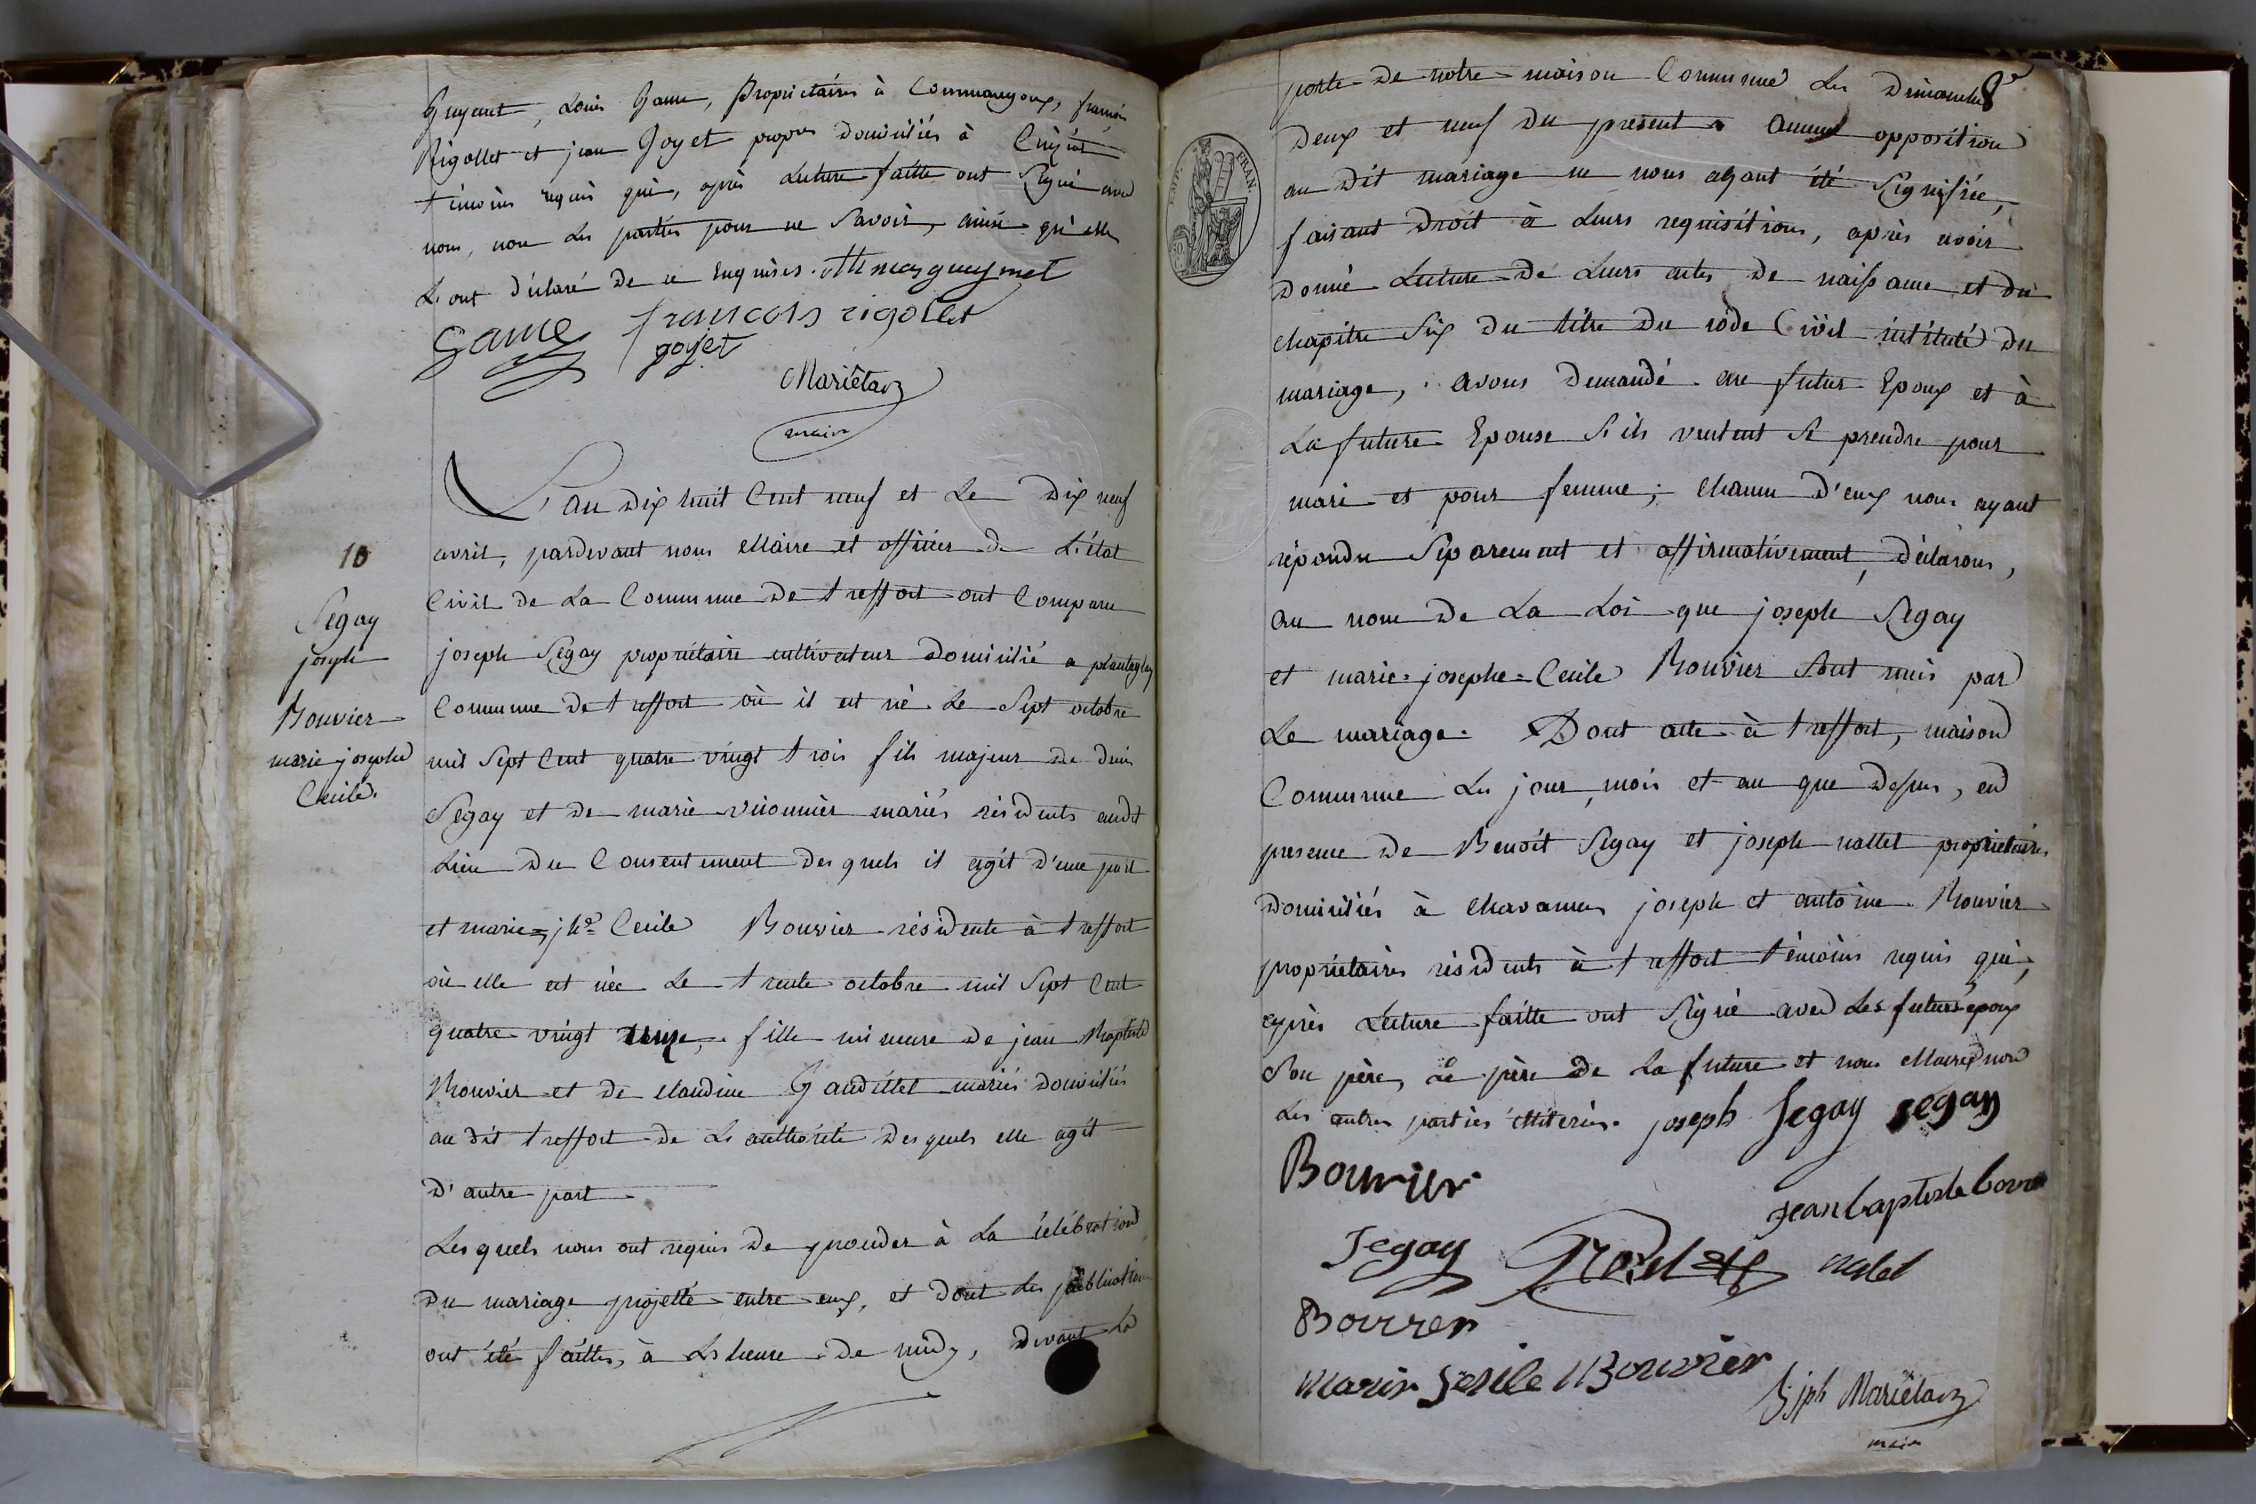 Guyent, Louis Game, propriétaires à Commangoux, francois
Rigollet et jean Goyet propres domiciliés à
témoins requis qui, après Lecture faitte ont Signé avec
nous, non les parties pour ne Savoir, ainsi qu'elles
L'ont déclaré de ce Enquises.
Game francois rigollet
goyet
Mariétan
maire
L'an dix huit Cent neuf et Le dix neuf
avril, pardevant nous Maire et officier de L'état
Civil de La Commune de treffort ont Comparu
joseph Segay propriétaire cultivateur domicilié a plantaglay
Commune de treffort où il est né Le Sept octobre
mil Sept Cent quatre vingt trois fils majeur de denis
Segay et de marie vuonnier mariés résidents audit
Lieu du Consentement des quels il agit d'une part
et marie = jhe = Cecile Bouvier résidente à treffort
où elle est née Le trente octobre mil Sept Cent
quatre vingt onze, fille mineure de jean Baptiste
Bouvier et de claudine Gaudillet mariés domiciliés
au dit treffort de L'authorité des quels elle agit
D'autre part
Les quels nous ont requis de proceder à La célébration
Du mariage projetté entre eux, et dont les publications
ont été faittes, à L'heure de midy, devant La
10
Segay
joseph
Bouvier
marie josephe
Cecile.
8
porte de notre maison Commune Les Dimanches
Deux et neuf du present. Aucune opposition
au dit mariage ne nous ayant été Signifiée,
faisant Droit à Leurs requisitions, après avoir
Donné Lecture de Leurs actes de naissance et du
chapitre Six du titre du côde Civil intitulé du
mariage, avons Demandé au futur Epoux et à
La future Epouse S'ils veulent Se prendre pour
mari et pour femme; chacun D'eux nous ayant
répondu Séparement et affirmativement, déclarons,
au nom de La Loi que joseph Segay
et marie = josephe = Cecile Bouvier Sont unis par
Le mariage. Dont acte à treffort, maison
Commune Les jour, mois et an que dessus, en
presence de Benoit Segay et joseph nallet propriétaires
Domiciliés à chavannes joseph et antoine Bouvier
propriétaires résidents à treffort témoins requis qui,
après Lecture faitte ont Signé avec Les futurs époux
Son père, Le père de La future et nous Maire, non
Les autres parties illiterées. joseph Segay segay
Bouvier
jean baptiste bouvie
Segay nalet
Bouvier
Marie Sesile Bouvier
Jph Mariétan
maire